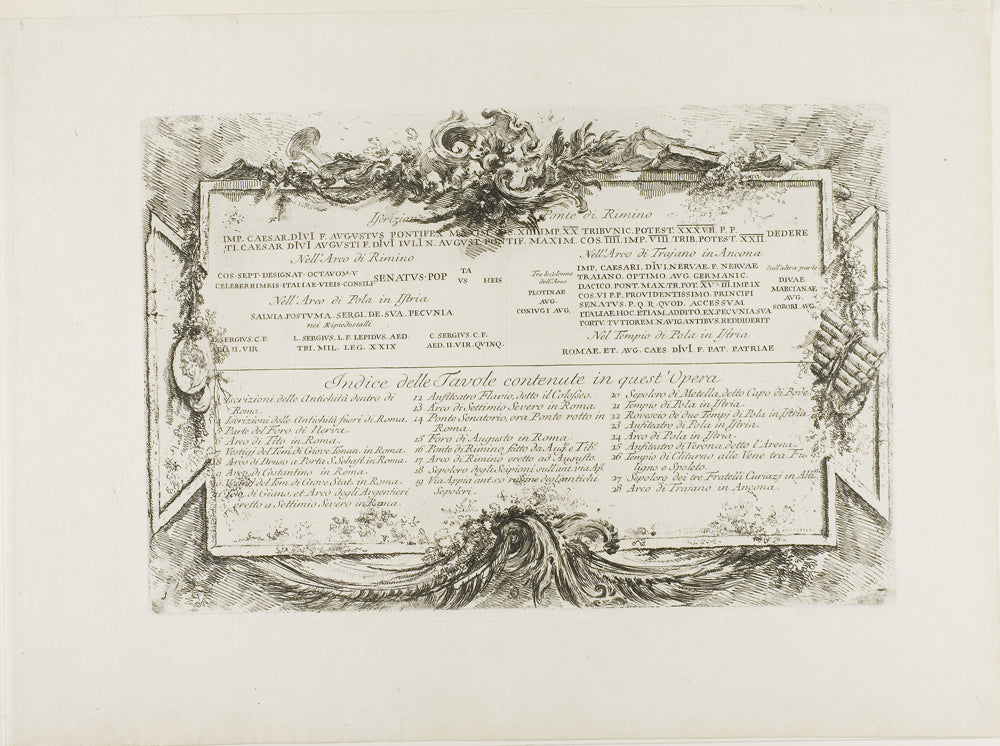 Iscrizioni Ponte di Rimino
IMP. CAESAR. DIVI F. AUGUSTVS PONTIFEX MAXIM. XIII. IMP. XX TRIBVNIC. POTEST. XXXVII. P. P.
TI. CAESAR DIVI AVGVSTI F. DIVI IVLI N. AVGVST. PONTIF. MAXIM. COS. IIII. IMP. VIII. TRIB. POTEST. XXII. DEDERE
Nell'Arco di Rimino
COS·SEPT·DESIGNAT·OCTAVOM·V
CELEBERRIMEIS·ITALIAE·VIEIS·CONSILI SENATVS·POP TA
VS HEIS
Nell'Arco di Pola in Istria
SALVIA. POSTVMA. SERGI. DE. SVA. PECVNIA
nei Ripiedestalli
SERGIVS. C. F. L. SERGIVS. L. F. LEPIDVS. AED. C. SERGIVS. C. F.
AED. II. VIR TRI. MIL. LEG. XXIX AED. II. VIR. QVINQ.
Nell'Arco di Trajano in Ancona
Tra le colonne
dell'Arco
PLOTINAE
AVG.
CONIVGI AVG.
IMP. CAESARI. DIVI. NERVAE. F. NERVAE
TRAIANO. OPTIMO. AVG GERMANIC.
DACICO. PONT. MAX. TR. POT. XVIIII. IMP. IX
COS. VI P. P. PROVIDENTISSIMO. PRINCIPI
SENATVS. P. Q. R. QVOD. ACCESSVM
ITALIAE. HOC. ETIAM. ADDITO. EX. PECVNIA. SVA
PORTV. TVTIOREM. NAVIGANTIBVS. REDDIDERIT
dall'altra parte
DIVAE
MARCIANAE
AVG.
SORORI. AVG.
Nel Tempio di Pola in Istria
ROMAE. ET. AVG. CAES. DIVI. F. PAT. PATRIAE
Indice delle Tavole contenute in quest' Opera
Iscrizioni delle Antichità dentro di
Roma.
Iscrizioni delle Antichità fuori di Roma.
Parte del Foro di Nerva.
6 Arco di Tito in Roma.
7 Vestigi del Tem. di Giove Tonan. in Roma.
8 Arco di Druso a Porta S. Sebast. in Roma.
9 Arco di Costantino in Roma.
del Tem. di Giove Stat. in Roma.
Tem. di Giano, et Arco degli Argentieri
eretto a Settimio Severo in Roma.
12 Anfiteatro Flavio, detto il Colosseo.
13 Arco di Settimio Severo in Roma.
14 Ponte Senatorio, ora Ponte rotto in
Roma.
15 Foro di Augusto in Roma.
16 Ponte di Rimino, fatto da Aug. e Tib.
17 Arco di Rimino eretto ad Augusto.
18 Sepolcro degli Scipioni sull'ant. via Ap.
19 Via Appia ant. co' degl'antichi
Sepolcri.
20 Sepolcro di Metella, detto Capo di Bove
21 Tempio di Pola in Istria.
22 Rovescio de' due Tempi di Pola in Istria
23 Anfiteatro di Pola in Istria.
24 Arco di Pola in Istria.
25 Anfiteatro di Verona, detto l'Arena.
26 Tempio di Clitunno alle Vene tra Fu-
ligno e Spoleto.
27 Sepolcro dei tre Fratelli Curiazi in Alba
28 Arco di Traiano in Ancona.